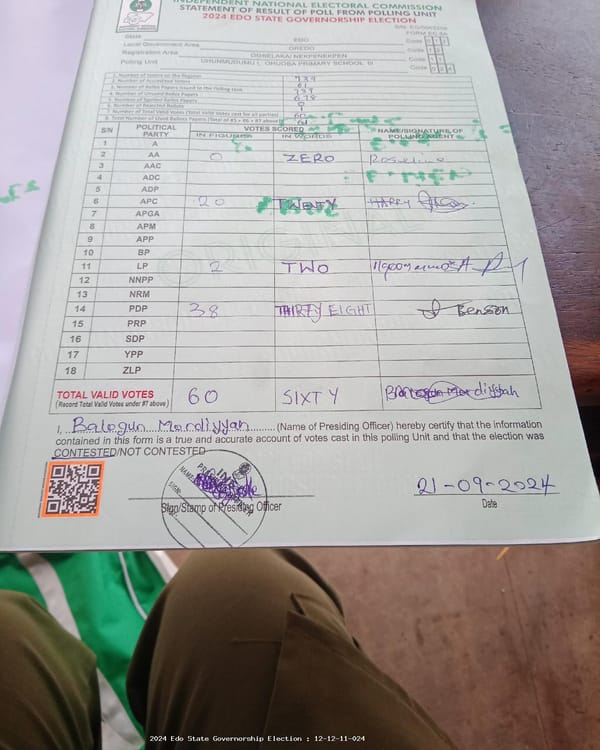 INDEPENDENT NATIONAL ELECTORAL COMMISSION
STATEMENT OF RESULT OF POLL FROM POLLING UNIT
2024 EDO STATE GOVERNORSHIP ELECTION
FORM EC 8A
State EDO Code
Local Government Area OREDO Code
Registration Area OGBELAKA/ NEKPENEKPEN Code
Polling Unit UHUNMUDUMU I, OHUOBA PRIMARY SCHOOL III Code
1. Number of Voters on the Register 739
2. Number of Accredited Voters 61
3. Number of Ballot Papers Issued to the Polling Unit 739
4. Number of Unused Ballot Papers 678
5. Number of Spoiled Ballot Papers 0
6. Number of Rejected Ballots 1
7. Number of Total Valid Votes (Total Valid Votes cast for all parties) 60
8. Total Number of Used Ballot Papers (Total of #5 + #6 + #7 above) 61
S/N POLITICAL PARTY VOTES SCORED NAME/SIGNATURE OF POLLING AGENT
IN FIGURES IN WORDS
1 A
2 AA 0 ZERO
3 AAC
4 ADC
5 ADP
6 APC 20 TWENTY HARRY
7 APGA
8 APM
9 APP
10 BP
11 LP 2 TWO
12 NNPP
13 NRM
14 PDP 38 THIRTY EIGHT Benson
15 PRP
16 SDP
17 YPP
18 ZLP
TOTAL VALID VOTES 60 SIXTY
(Record Total Valid Votes under #7 above)
I, Balogun Mardiyyah (Name of Presiding Officer) hereby certify that the information
contained in this form is a true and accurate account of votes cast in this polling Unit and that the election was
CONTESTED/NOT CONTESTED
21-09-2024
Sign/Stamp of Presiding Officer Date
2024 Edo State Governorship Election : 12-12-11-024